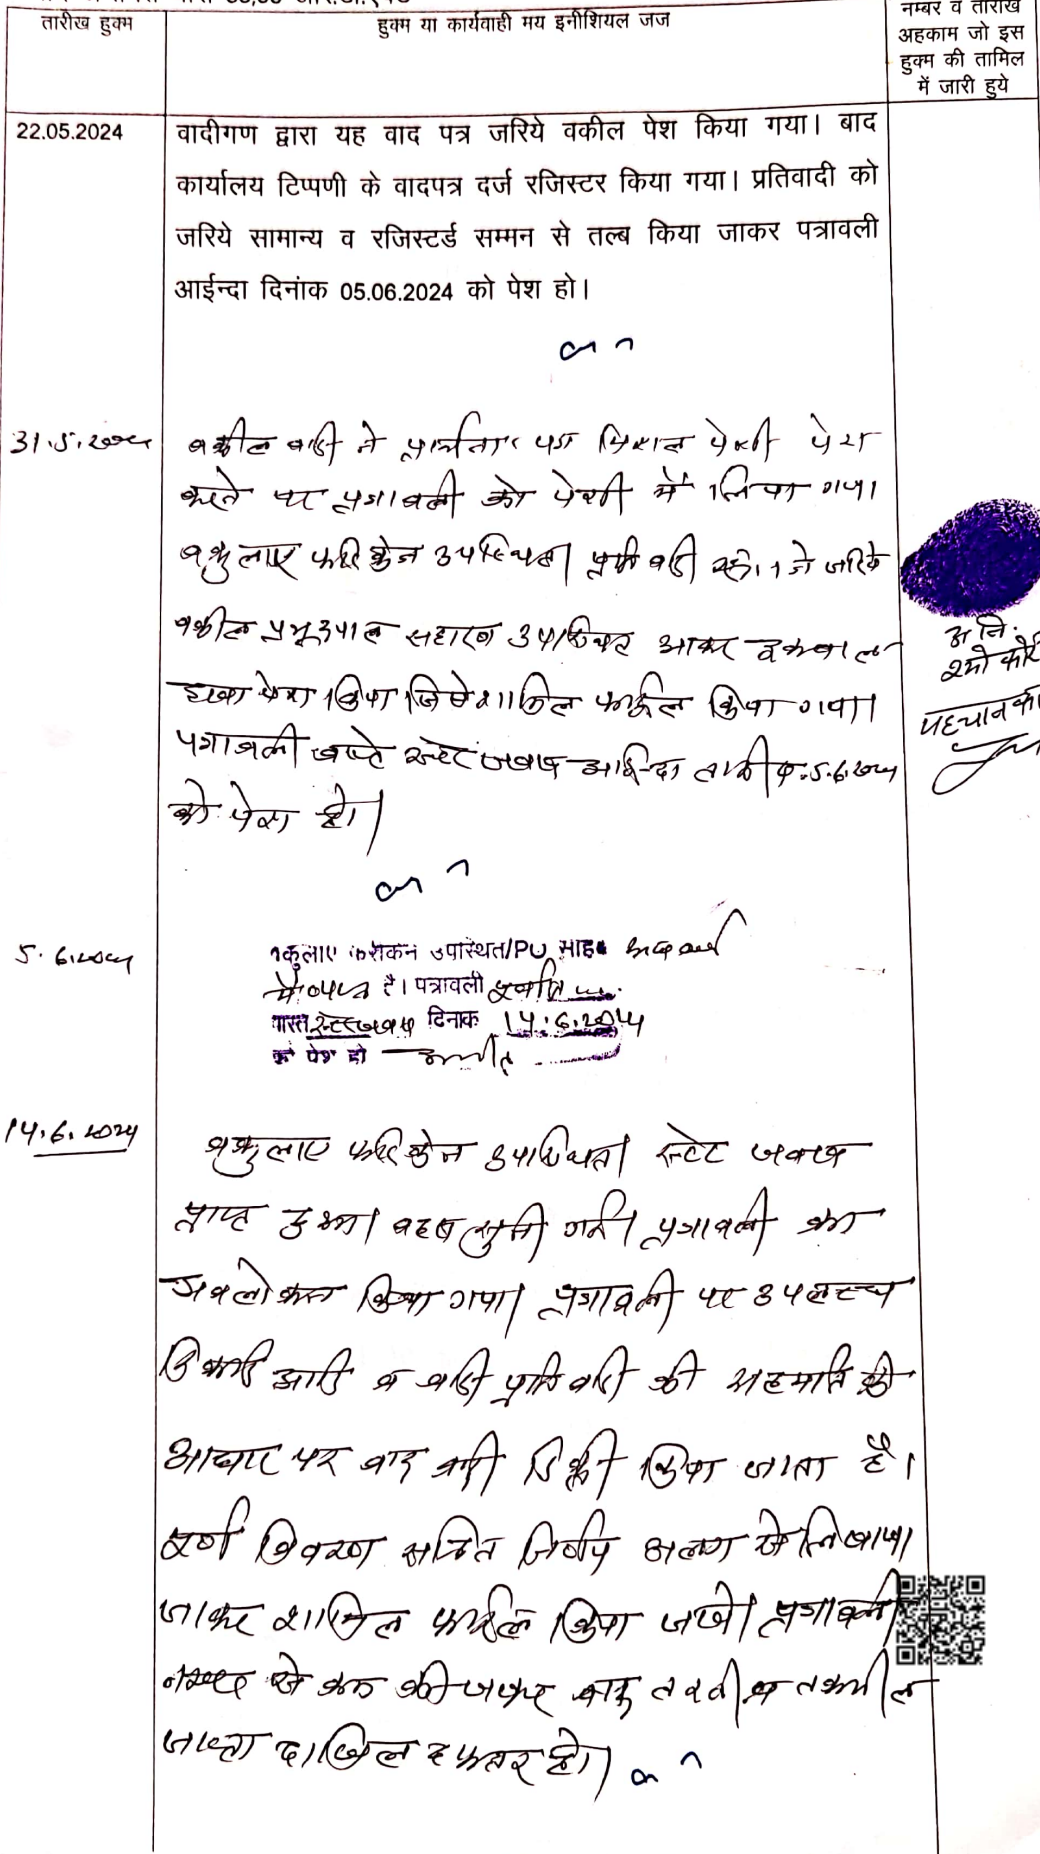 तारीख हुक्म
हुक्म या कार्यवाही मय इनीशियल जज
नम्बर व तारीख
अहकाम जो इस
हुक्म की तामिल
में जारी हुये
22.05.2024
वादीगण द्वारा यह वाद पत्र जरिये वकील पेश किया गया। बाद
कार्यालय टिप्पणी के वादपत्र दर्ज रजिस्टर किया गया। प्रतिवादी को
जरिये सामान्य व रजिस्टर्ड सम्मन से तल्ब किया जाकर पत्रावली
आईन्दा दिनांक 05.06.2024 को पेश हो।
31.5.2024
वकील वादी ने प्रार्थना पत्र पेशी पेश
करने पर पत्रावली को पेशी में लिया गया।
वकुलाए फरिकेन उपस्थित। प्रतिवादी सं. 1 ने जरिये
वकील सहारण उपस्थित आकर इकबाल
दावा पेश किया जिसे शामिल फाईल किया गया।
पत्रावली वास्ते स्टेट जवाब आईन्दा तारीख 5.6.2024
को पेश हो।
अ. नि.
पहचानकर्ता
5.6.2024
वकुलाए फरीकन उपस्थित/PO साहब
है। पत्रावली
वास्ते स्टेट जवाब दिनांक 14.6.2024
को पेश हो
14.6.2024
वकुलाए फरिकेन उपस्थित। स्टेट जवाब
प्राप्त हुआ। बहस सुनी गई। पत्रावली का
अवलोकन किया गया। पत्रावली पर उपलब्ध
रिकार्ड आदि व वादी प्रतिवादी की सहमति के
आधार पर वाद वादी डिक्री किया जाता है।
पूर्ण विवरण सहित निर्णय अलग से लिखाया
जाकर शामिल फाईल किया जावे। पत्रावली
नम्बर से कम की जाकर बाद तरतीब व तकमील
जाब्ता दाखिल दफ्तर हो।